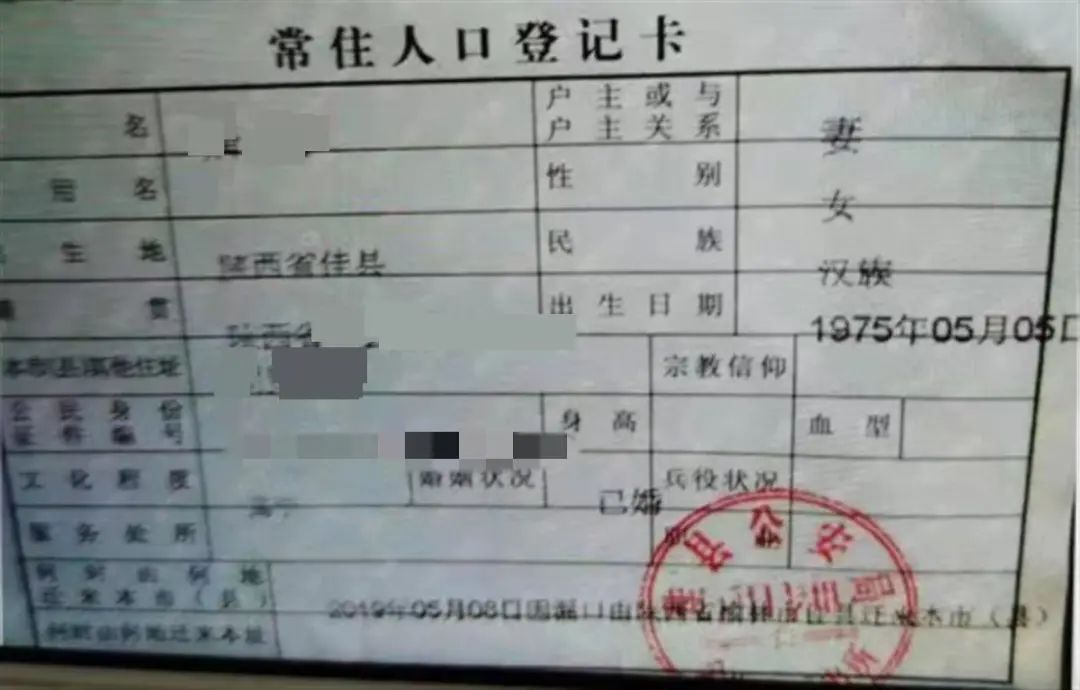 常住人口登记卡
名
户主或与
户主关系
妻
用名
性别
女
生地
陕西省佳县
民族
汉族
贯
陕西省
出生日期
1975年05月05日
本市(县)其他住址
宗教信仰
公民身份
证件编号
身高
血型
文化程度
婚姻状况
已婚
兵役状况
服务处所
何时由何地
迁来本市(县)
2019年05月08日因漏口由陕西省榆林市佳县迁来本市(县)
何时由何地迁来本址
县公安局